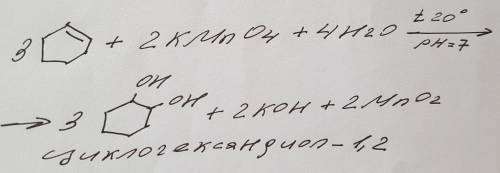 3 + 2KMnO4 + 4H2O t 20° pH=7
→ 3 OH OH + 2KOH + 2MnO2
циклогександиол-1,2